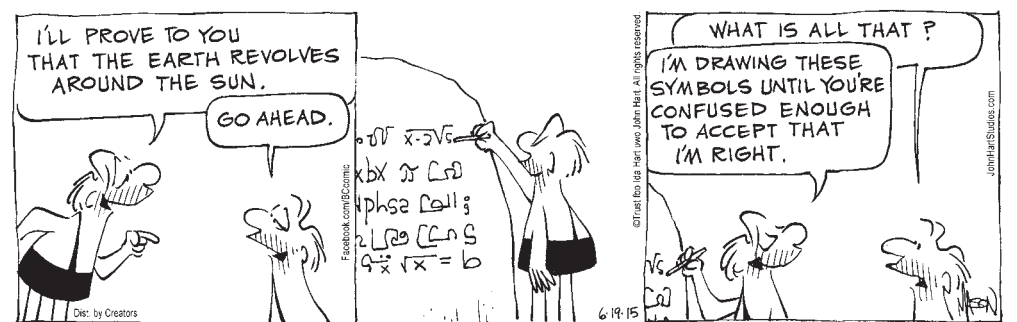 I'LL PROVE TO YOU
THAT THE EARTH REVOLVES
AROUND THE SUN.
GO AHEAD.
Dist. by Creators
Facebook.com/BCcomic
x-2√5
xbx
√x = b
6·19·15
©Trust fbo Ida Hart uwo John Hart. All rights reserved
WHAT IS ALL THAT?
I'M DRAWING THESE
SYMBOLS UNTIL YOU'RE
CONFUSED ENOUGH
TO ACCEPT THAT
I'M RIGHT.
JohnHartStudios.com
MASON